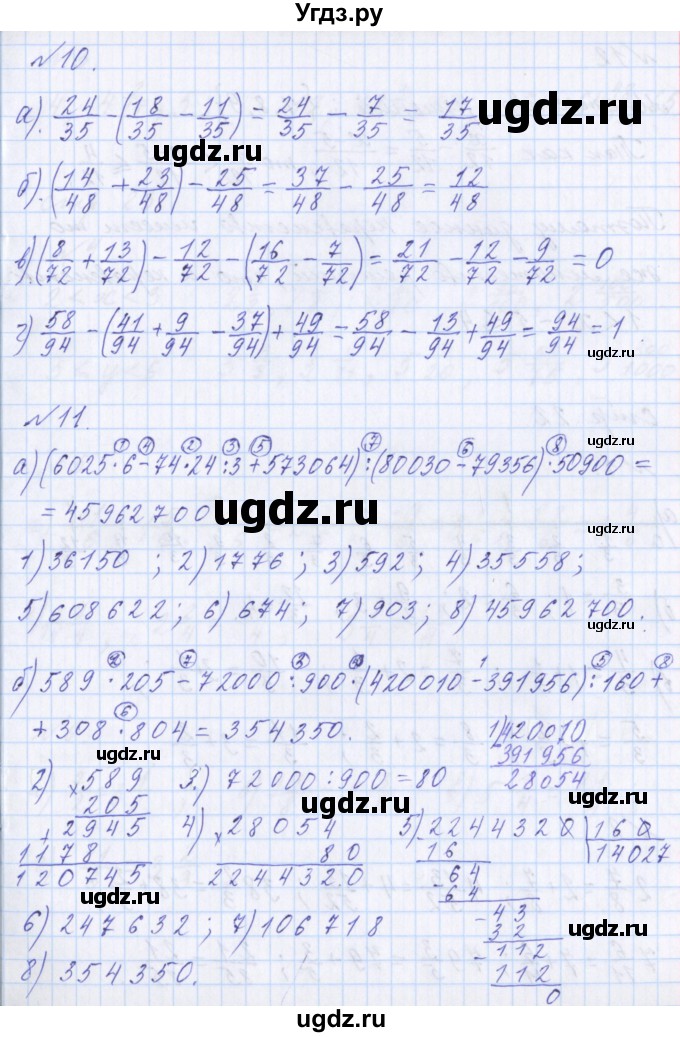 Угдз.ру
№10.
а). 24/35 - (18/35 - 11/35) = 24/35 - 7/35 = 17/35
ugdz.ru
ugdz.ru
б). (14/48 + 23/48) - 25/48 = 37/48 - 25/48 = 12/48
в) (8/72 + 13/72) - 12/72 - (16/72 - 7/72) = 21/72 - 12/72 - 9/72 = 0
г) 58/94 - (41/94 + 9/94 - 37/94) + 49/94 = 58/94 - 13/94 + 49/94 = 94/94 = 1.
ugdz.ru
ugdz.ru
№11.
а) (6025 · 6 - 74 · 24 : 3 + 573064) : (80030 - 79356) · 50900 =
= 45962700
ugdz.ru
ugdz.ru
1) 36150 ; 2) 1776 ; 3) 592 ; 4) 35558 ;
5) 608622 ; 6) 674 ; 7) 903 ; 8) 45962700.
ugdz.ru
б) 589 · 205 - 72000 : 900 · (420010 - 391956) : 160 +
+ 308 · 804 = 354350.
ugdz.ru
1) 420010
- 391956
28054
2) × 589
205
+ 2945
1178
120745
3.) 72000 : 900 = 80
ugdz.ru
ugdz.ru
4) × 28054
80
2244320
5) 2244320 | 160
16
14027
- 64
64
- 43
32
- 112
112
0
6) 247632 ; 7) 106718
ugdz.ru
ugdz.ru
8) 354350.
ugdz.ru